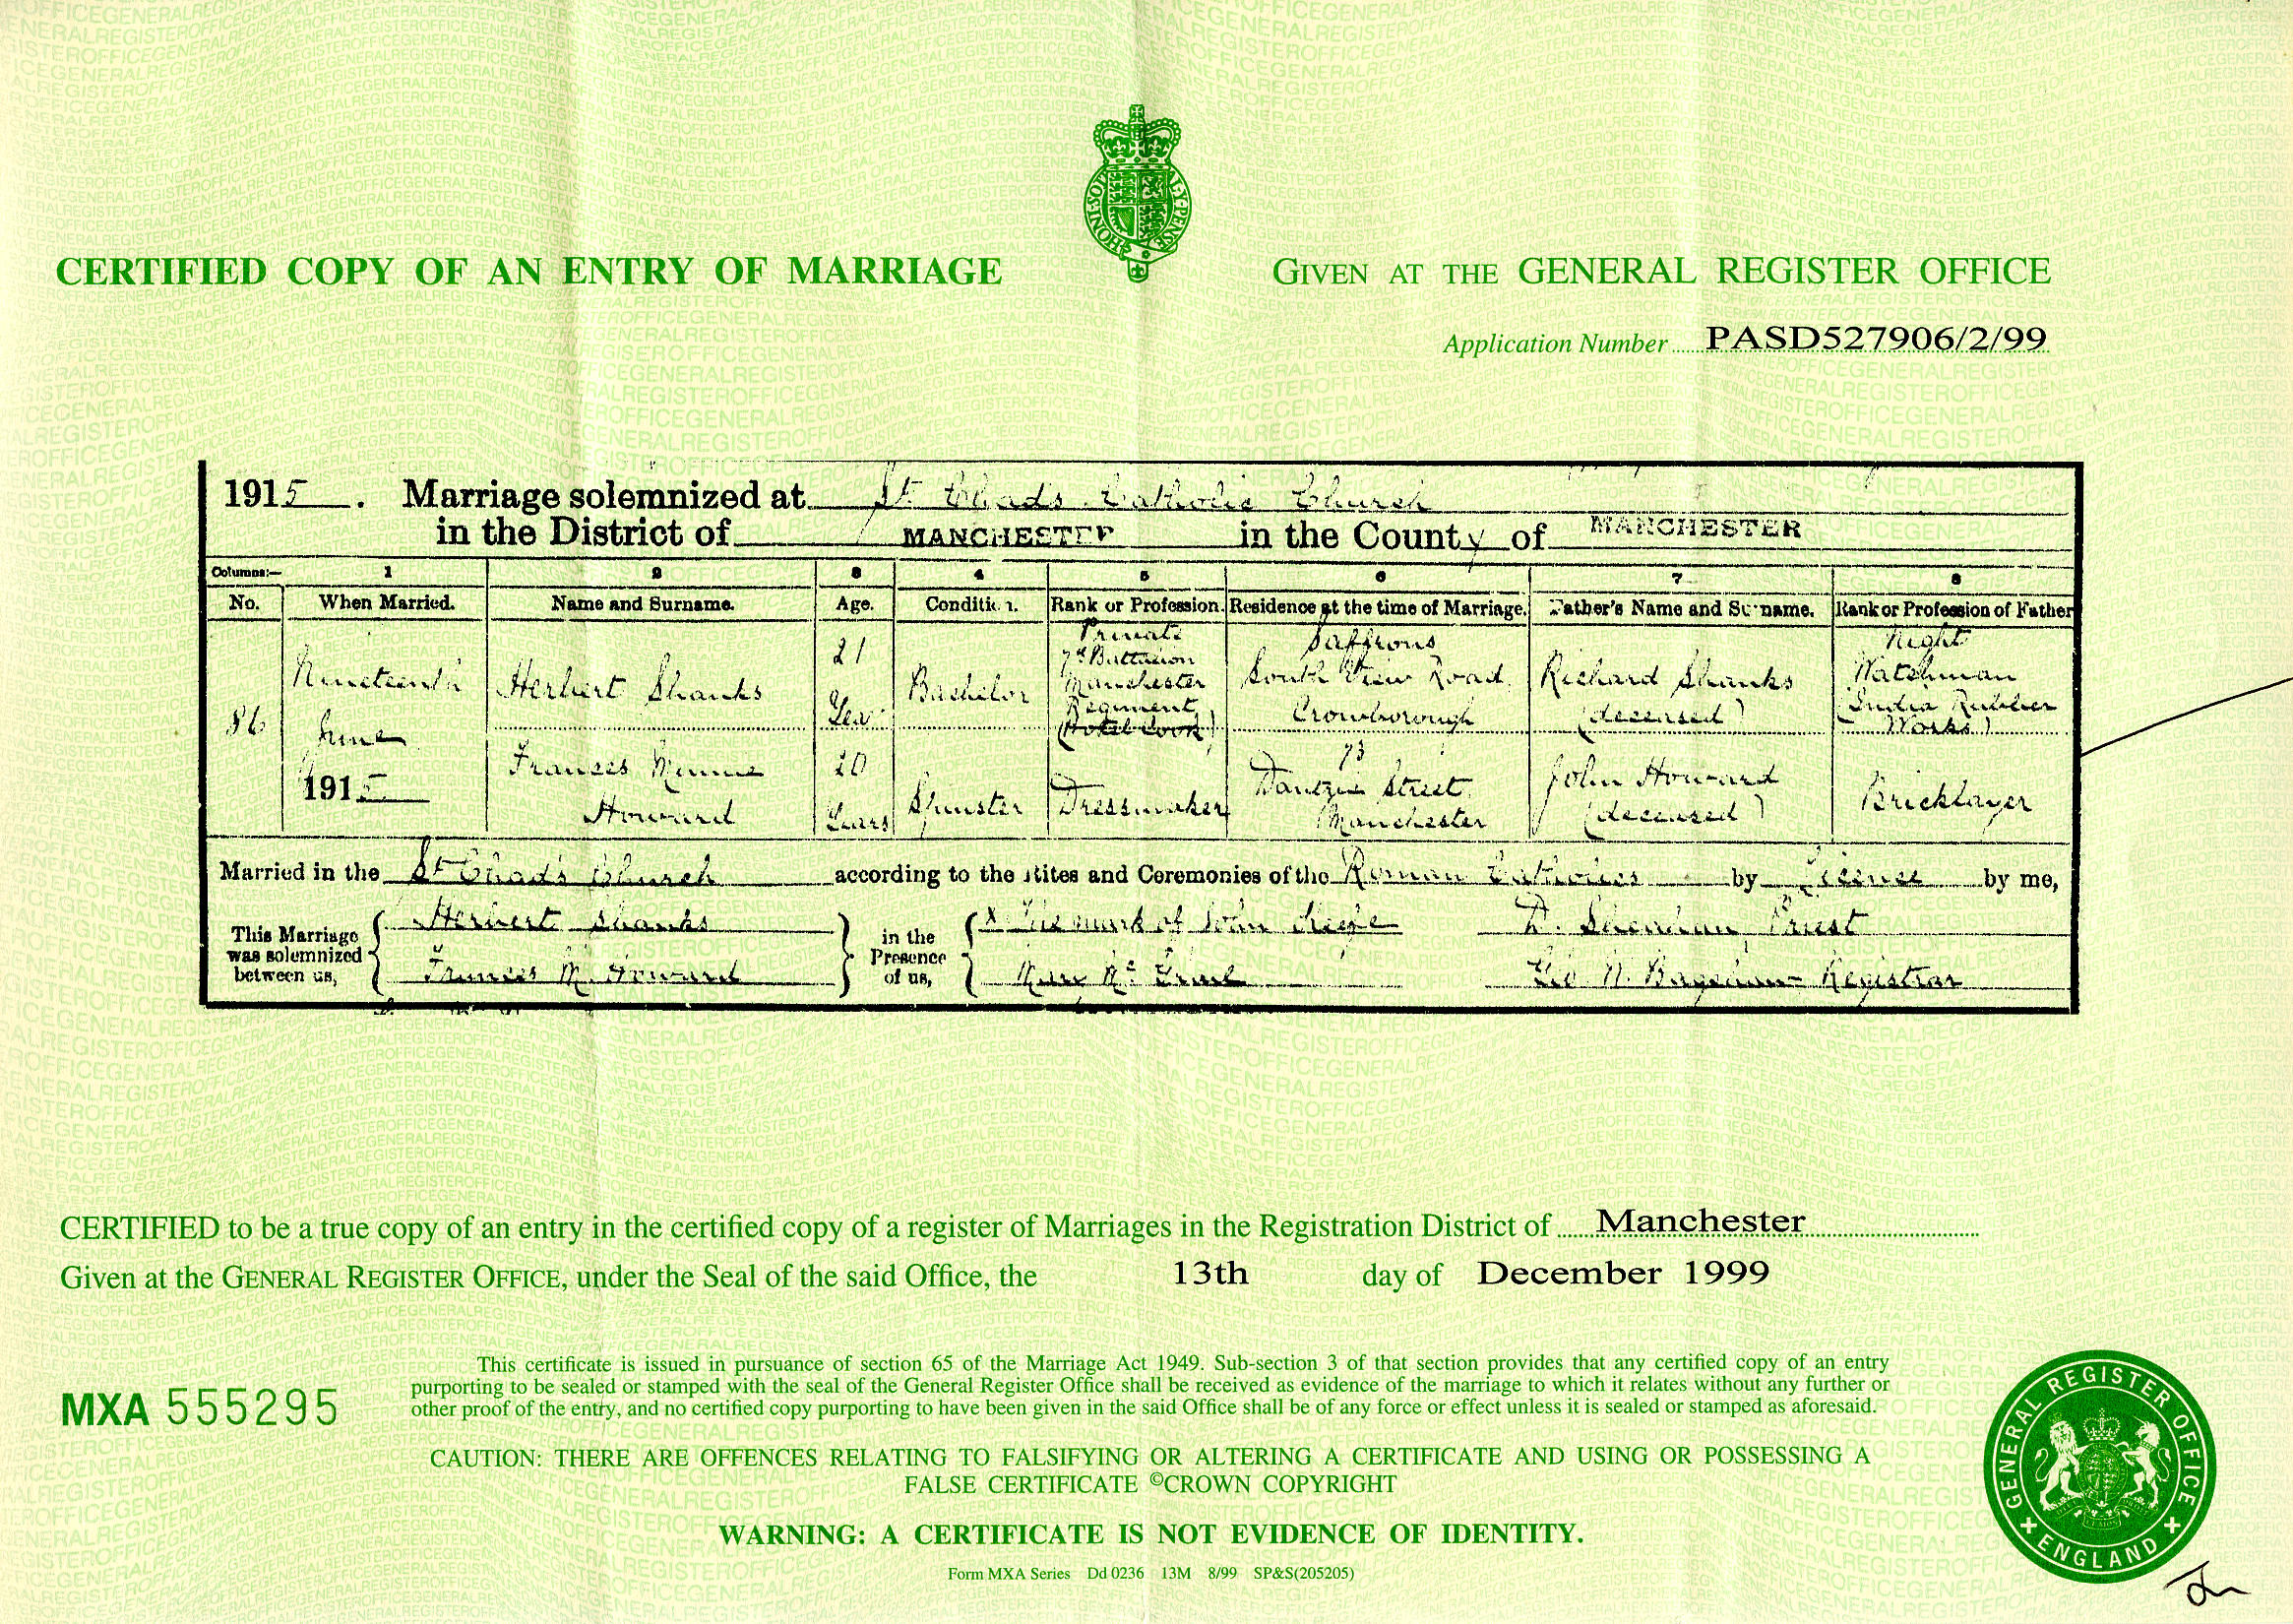 HONI·SOIT
Y·PENSE
CERTIFIED COPY OF AN ENTRY OF MARRIAGE
GIVEN AT THE GENERAL REGISTER OFFICE
Application Number PASD527906/2/99
1915. Marriage solemnized at St. Chad's Catholic Church
in the District of MANCHESTER in the County of MANCHESTER
Columns:— 1 2 3 4 5 6 7 8
No. When Married. Name and Surname. Age. Condition. Rank or Profession. Residence at the time of Marriage. Father's Name and Surname. Rank or Profession of Father
86
Nineteenth
June
1915
Herbert Shanks
21
Years
Bachelor
Private
7th Battalion
Manchester
Regiment
(Hotel Cook)
Saffrons
South View Road
Crowborough
Richard Shanks
(deceased)
Night
Watchman
(India Rubber
Works)
Frances Minnie
Howard
20
Years
Spinster
Dressmaker
73
Dantzic Street
Manchester
John Howard
(deceased)
Bricklayer
Married in the St Chad's Church according to the Rites and Ceremonies of the Roman Catholics by License by me,
This Marriage
was solemnized
between us,
Herbert Shanks
Frances M. Howard
in the
Presence
of us,
X The mark of John Keefe
Mary Mc
Sheridan, Priest
Geo N. Bagshaw Registrar
CERTIFIED to be a true copy of an entry in the certified copy of a register of Marriages in the Registration District of Manchester
Given at the GENERAL REGISTER OFFICE, under the Seal of the said Office, the 13th day of December 1999
MXA 555295
This certificate is issued in pursuance of section 65 of the Marriage Act 1949. Sub-section 3 of that section provides that any certified copy of an entry
purporting to be sealed or stamped with the seal of the General Register Office shall be received as evidence of the marriage to which it relates without any further or
other proof of the entry, and no certified copy purporting to have been given in the said Office shall be of any force or effect unless it is sealed or stamped as aforesaid.
CAUTION: THERE ARE OFFENCES RELATING TO FALSIFYING OR ALTERING A CERTIFICATE AND USING OR POSSESSING A
FALSE CERTIFICATE ©CROWN COPYRIGHT
WARNING: A CERTIFICATE IS NOT EVIDENCE OF IDENTITY.
Form MXA Series Dd 0236 13M 8/99 SP&S(205205)
GENERAL REGISTER OFFICE
ENGLAND